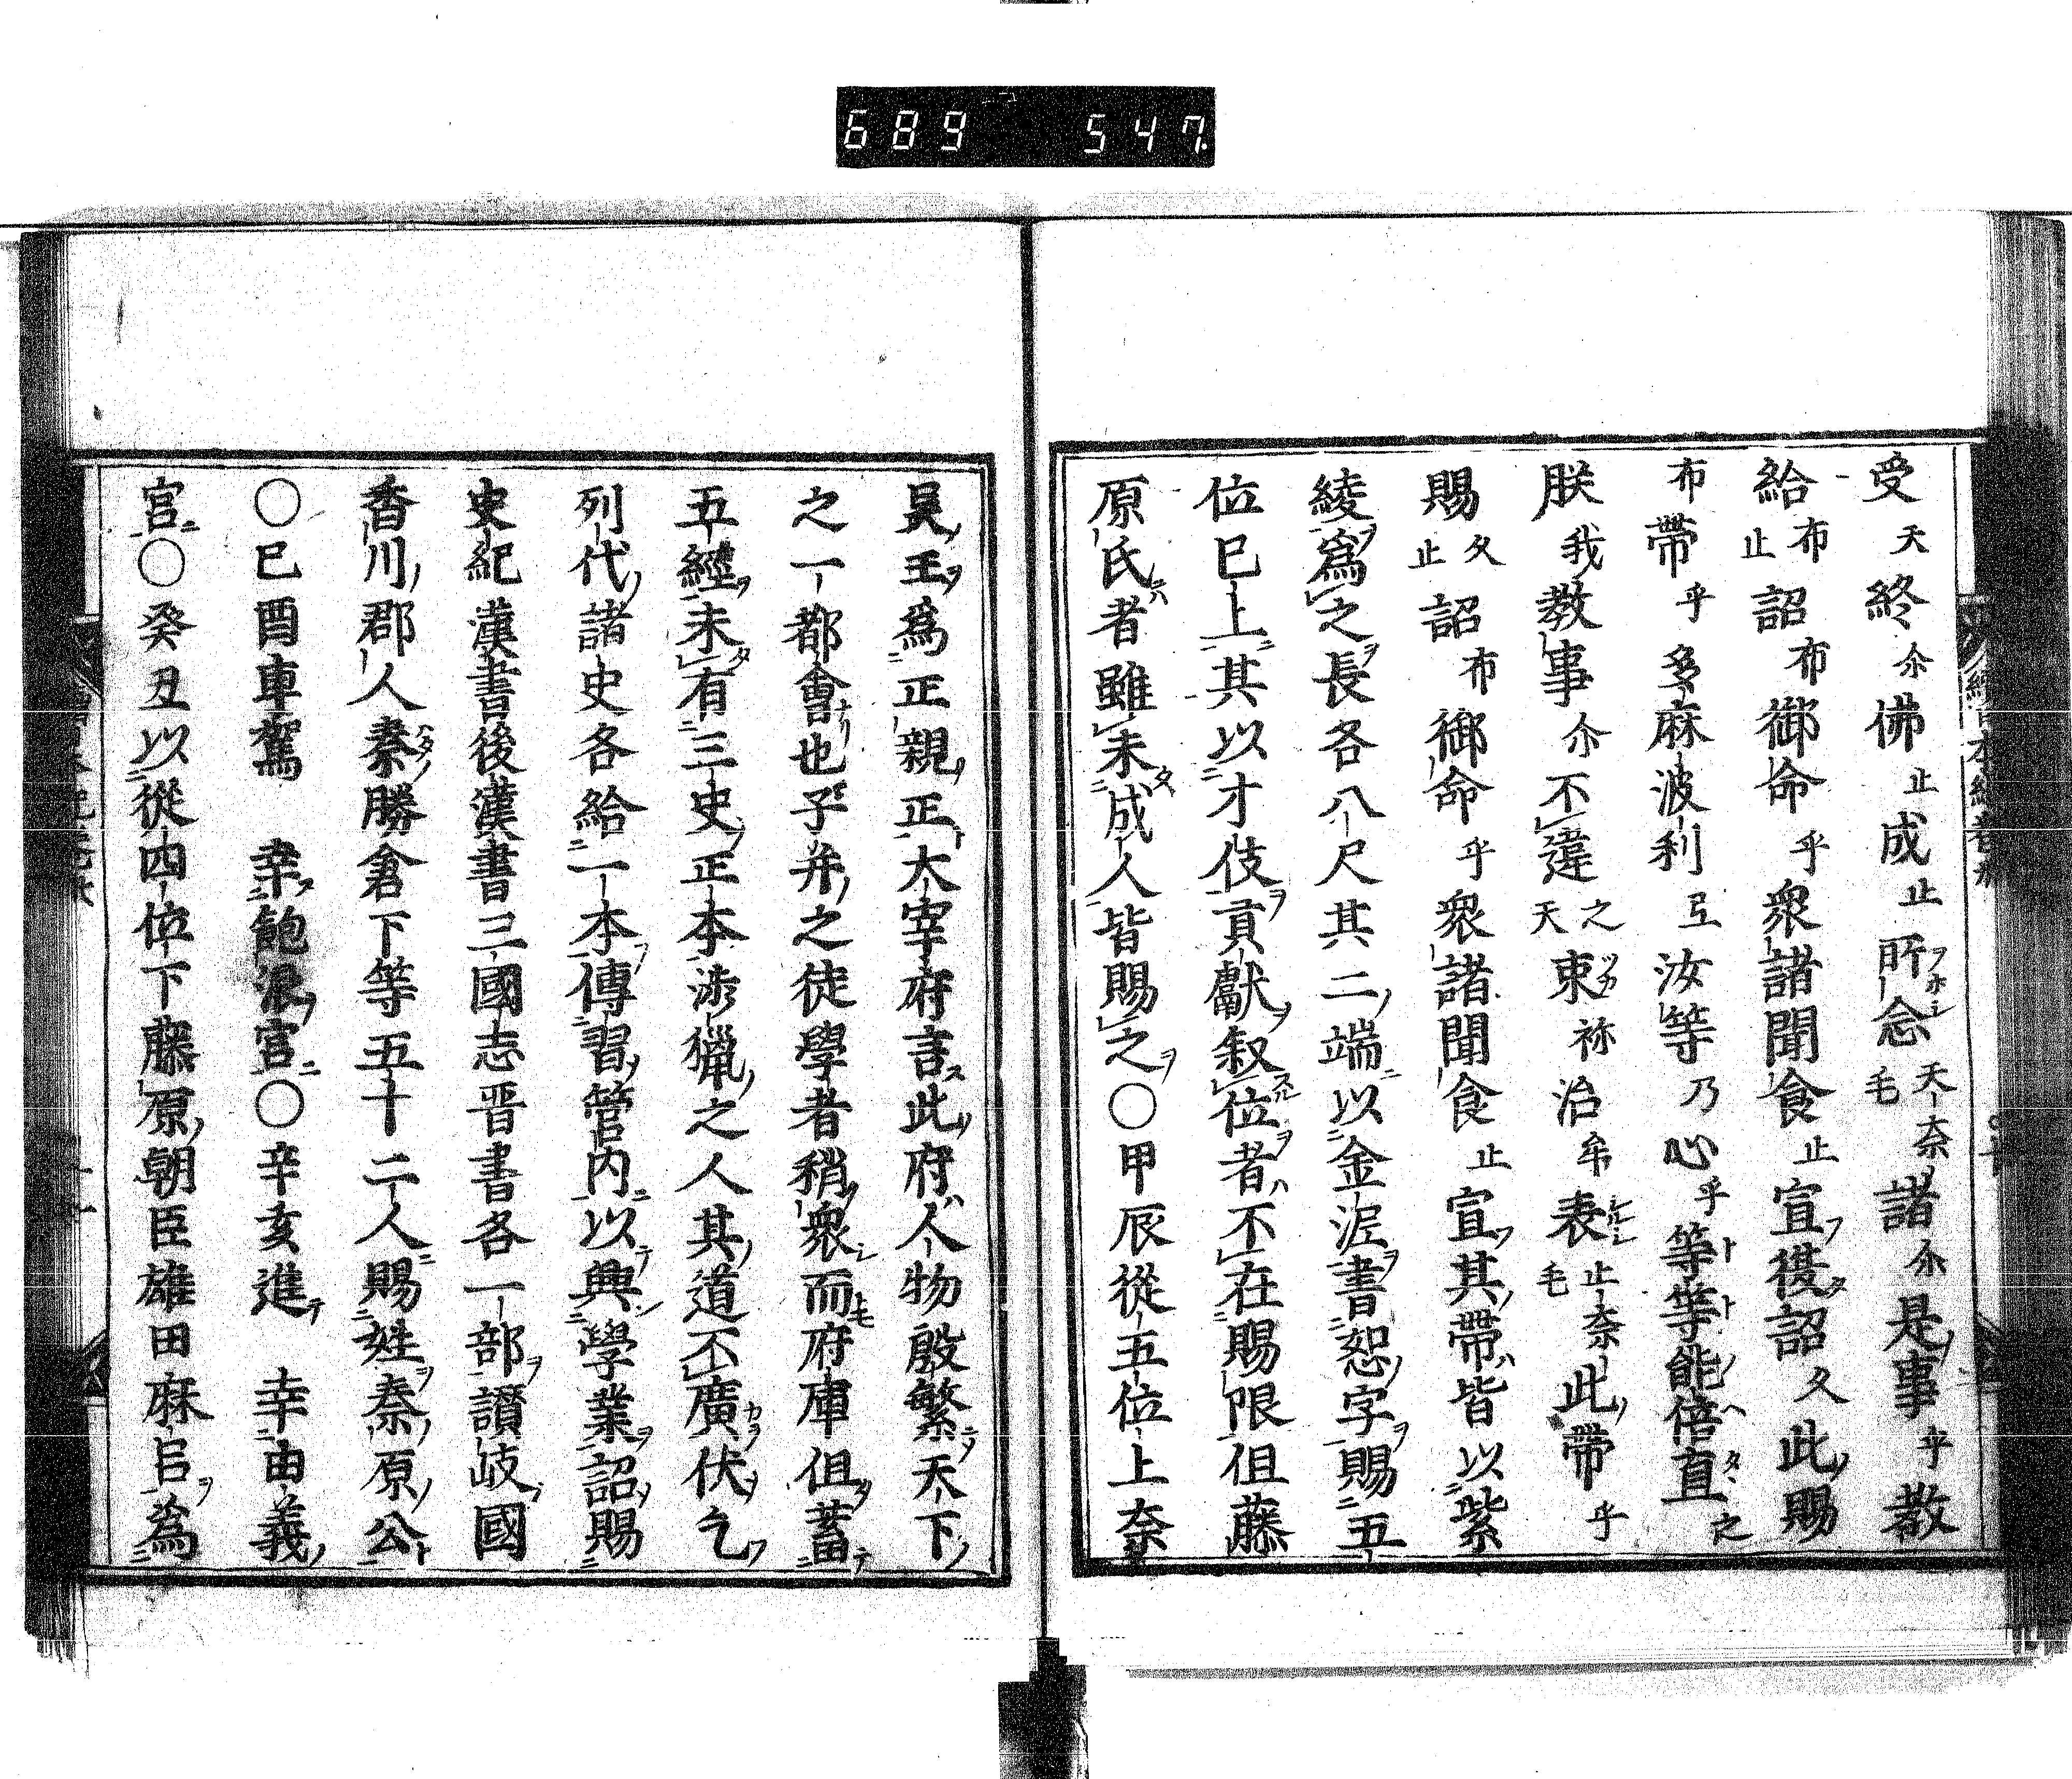 689 547
受天終尒佛止成止所念天奈毛諸尒是事乎教
給布止詔布御命乎衆諸聞食止宣復詔久此賜
布帶乎多麻波利弖汝等乃心乎等等能倍直之
朕我教事尒不違之天束祢治牟表止奈毛此帶乎
賜久止詔布御命乎衆諸聞食止宣其帶皆以紫
綾爲之長各八尺其二端以金泥書恕字賜五
位已上其以才伎貢獻叙位者不在賜限但藤
原氏者雖未成人皆賜之〇甲辰從五位上奈
吴王爲正親正大宰府言此府人物殷繁天下
之一都會也子弁之徒學者稍衆而府庫但蓄
五經未有三史正本渉獵之人其道不廣伏乞
列代諸史各給一本傳習管内以興學業詔賜
史紀漢書後漢書三國志晋書各一部讃岐國
香川郡人秦勝倉下等五十二人賜姓秦原公
〇己酉車駕 幸飽浪宮〇辛亥進 幸由義
宮〇癸丑以從四位下藤原朝臣雄田麻呂爲